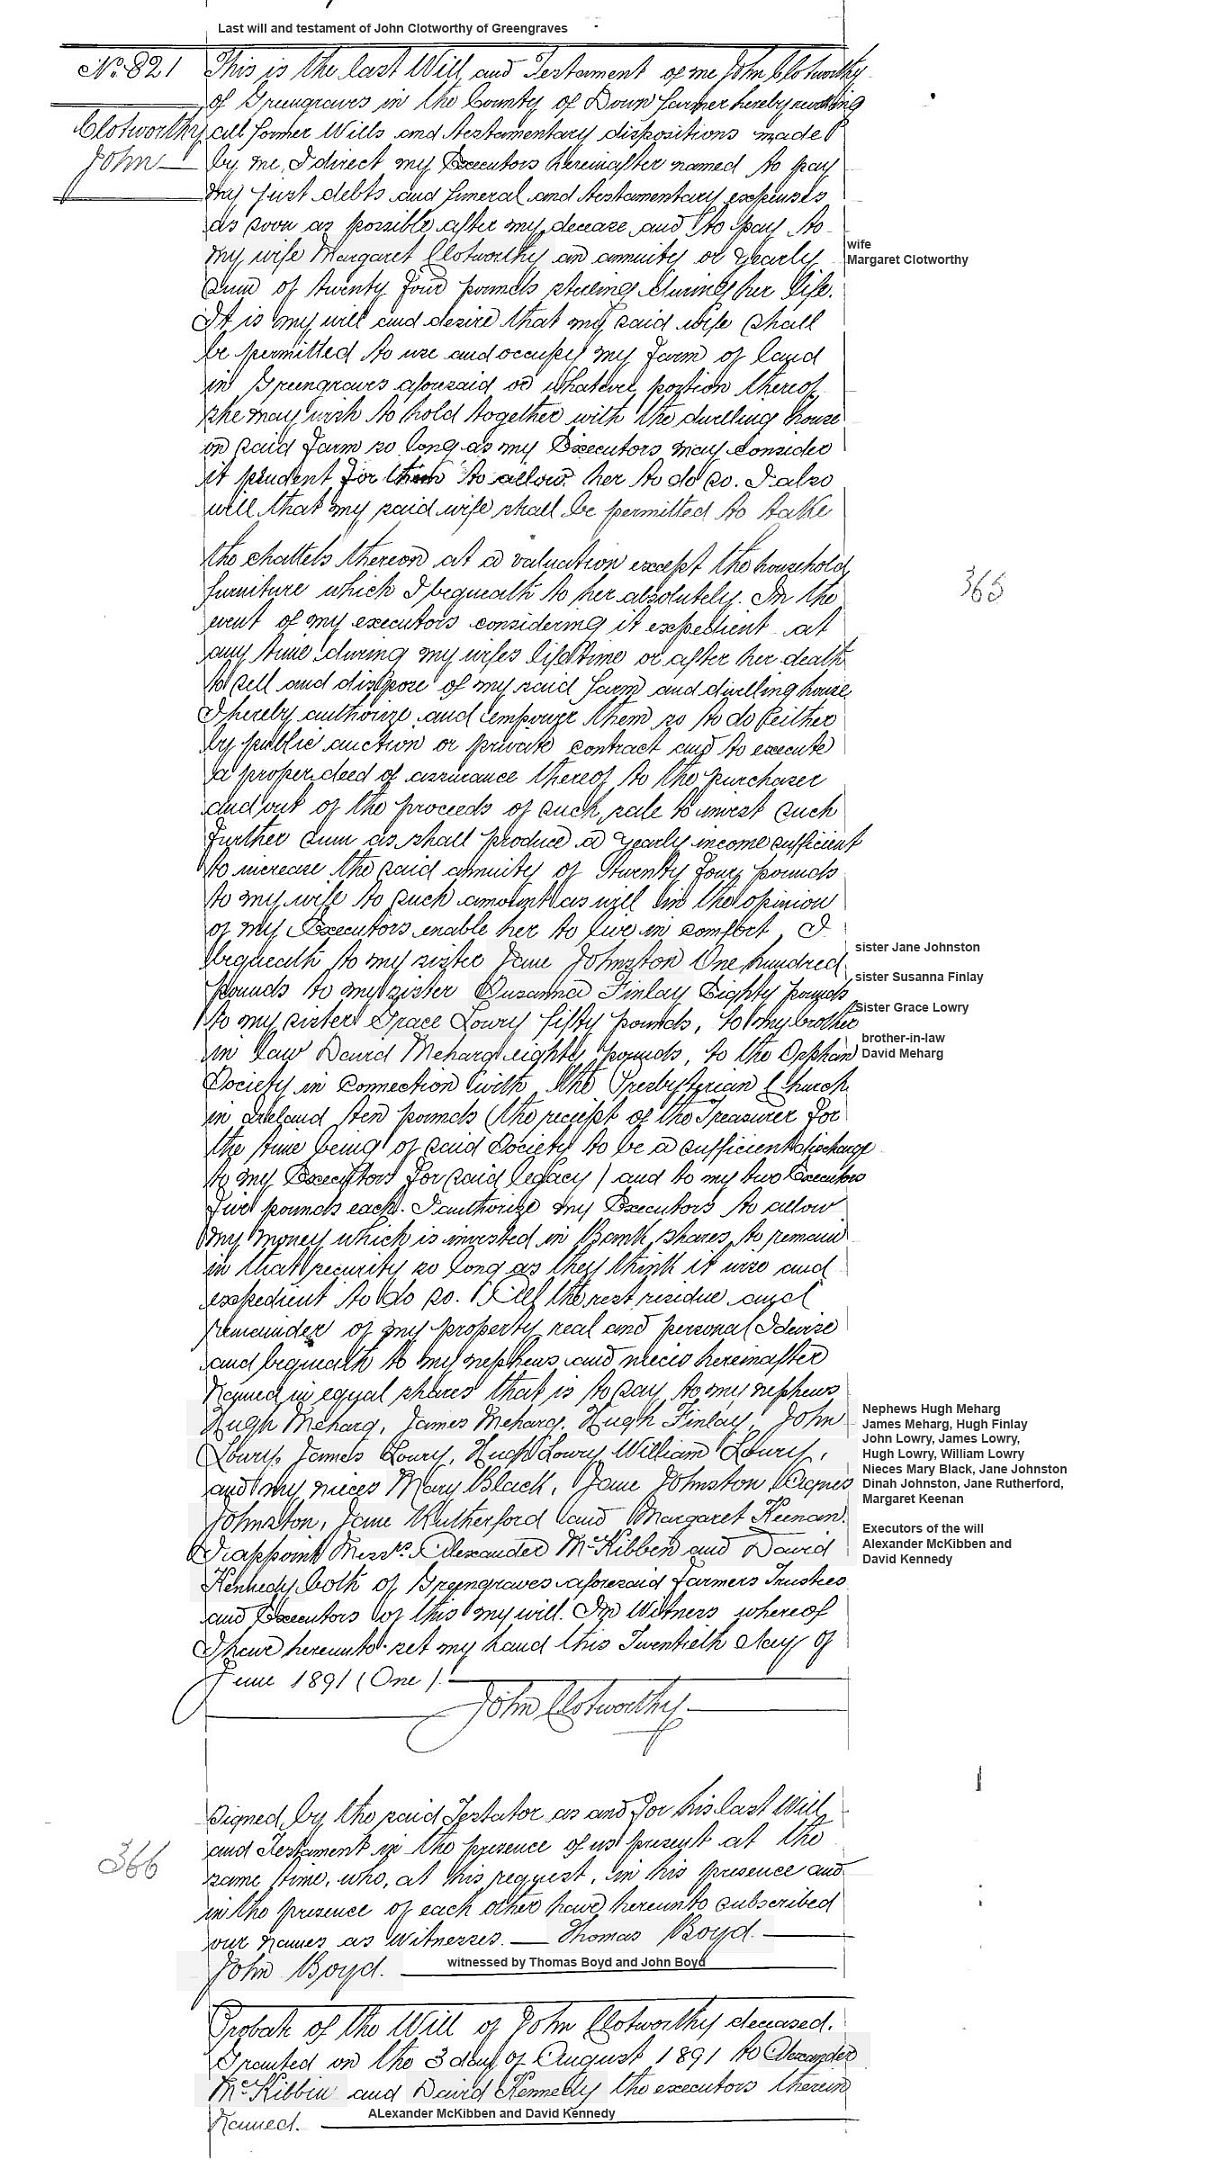 Last will and testament of John Clotworthy of Greengraves
No. 821
Clotworthy
John
This is the last Will and Testament of me John Clotworthy
of Greengraves in the County of Down farmer hereby revoking
all former Wills and testamentary dispositions made
by me, I direct my Executors hereinafter named to pay
my just debts and funeral and testamentary expenses
as soon as possible after my decease and to pay to
my wife Margaret Clotworthy an annuity or yearly
wife
Margaret Clotworthy
sum of twenty four pounds sterling during her life.
It is my will and desire that my said wife shall
be permitted to use and occupy my farm of land
in Greengraves aforesaid or whatever portion thereof
she may wish to hold together with the dwelling house
on said farm so long as my Executors may consider
it prudent for them to allow her to do so. I also
will that my said wife shall be permitted to take
the chattels thereon at a valuation except the household
furniture which I bequeath to her absolutely. In the
365
event of my executors considering it expedient at
any time during my wifes lifetime or after her death
to sell and dispose of my said farm and dwelling house
I hereby authorize and empower them so to do either
by public auction or private contract and to execute
a proper deed of assurance thereof to the purchaser
and out of the proceeds of such sale to invest such
further sum as shall produce a yearly income sufficient
to increase the said annuity of twenty four pounds
to my wife to such amount as will in the opinion
of my Executors enable her to live in comfort, I
bequeath to my sister Jane Johnston One hundred
sister Jane Johnston
pounds to my sister Susanna Finlay Eighty pounds
sister Susanna Finlay
to my sister Grace Lowry fifty pounds, to my brother
Sister Grace Lowry
in law David Meharg eighty pounds, to the Orphan
brother-in-law
David Meharg
Society in connection with the Presbyterian Church
in Ireland ten pounds (the receipt of the Treasurer for
the time being of said Society to be a sufficient discharge
to my Executors for said legacy) and to my two Executors
five pounds each. I authorize my Executors to allow
my money which is invested in Bank shares to remain
in that security so long as they think it wise and
expedient to do so. All the rest residue and
remainder of my property real and personal I devise
and bequeath to my nephews and nieces hereinafter
named in equal shares that is to say to my nephews
Hugh Meharg, James Meharg, Hugh Finlay, John
Lowry, James Lowry, Hugh Lowry, William Lowry,
and my nieces Mary Black, Jane Johnston Agnes
Johnston, Jane Rutherford and Margaret Keenan.
Nephews Hugh Meharg
James Meharg, Hugh Finlay
John Lowry, James Lowry,
Hugh Lowry, William Lowry
Nieces Mary Black, Jane Johnston
Dinah Johnston, Jane Rutherford,
Margaret Keenan
I appoint Messrs. Alexander McKibben and David
Kennedy both of Greengraves aforesaid farmers Trustees
Executors of the will
Alexander McKibben and
David Kennedy
and Executors of this my will. In Witness whereof
I have hereunto set my hand this Twentieth day of
June 1891 (One).
John Clotworthy
Signed by the said Testator as and for his last Will
and Testament in the presence of us present at the
366
same time, who, at his request, in his presence and
in the presence of each other have hereunto subscribed
our names as Witnesses. — Thomas Boyd. —
John Boyd.
witnessed by Thomas Boyd and John Boyd
Probate of the Will of John Clotworthy deceased.
Granted on the 3 day of August 1891 to Alexander
McKibbin and David Kennedy the executors therein
named.
ALexander McKibben and David Kennedy